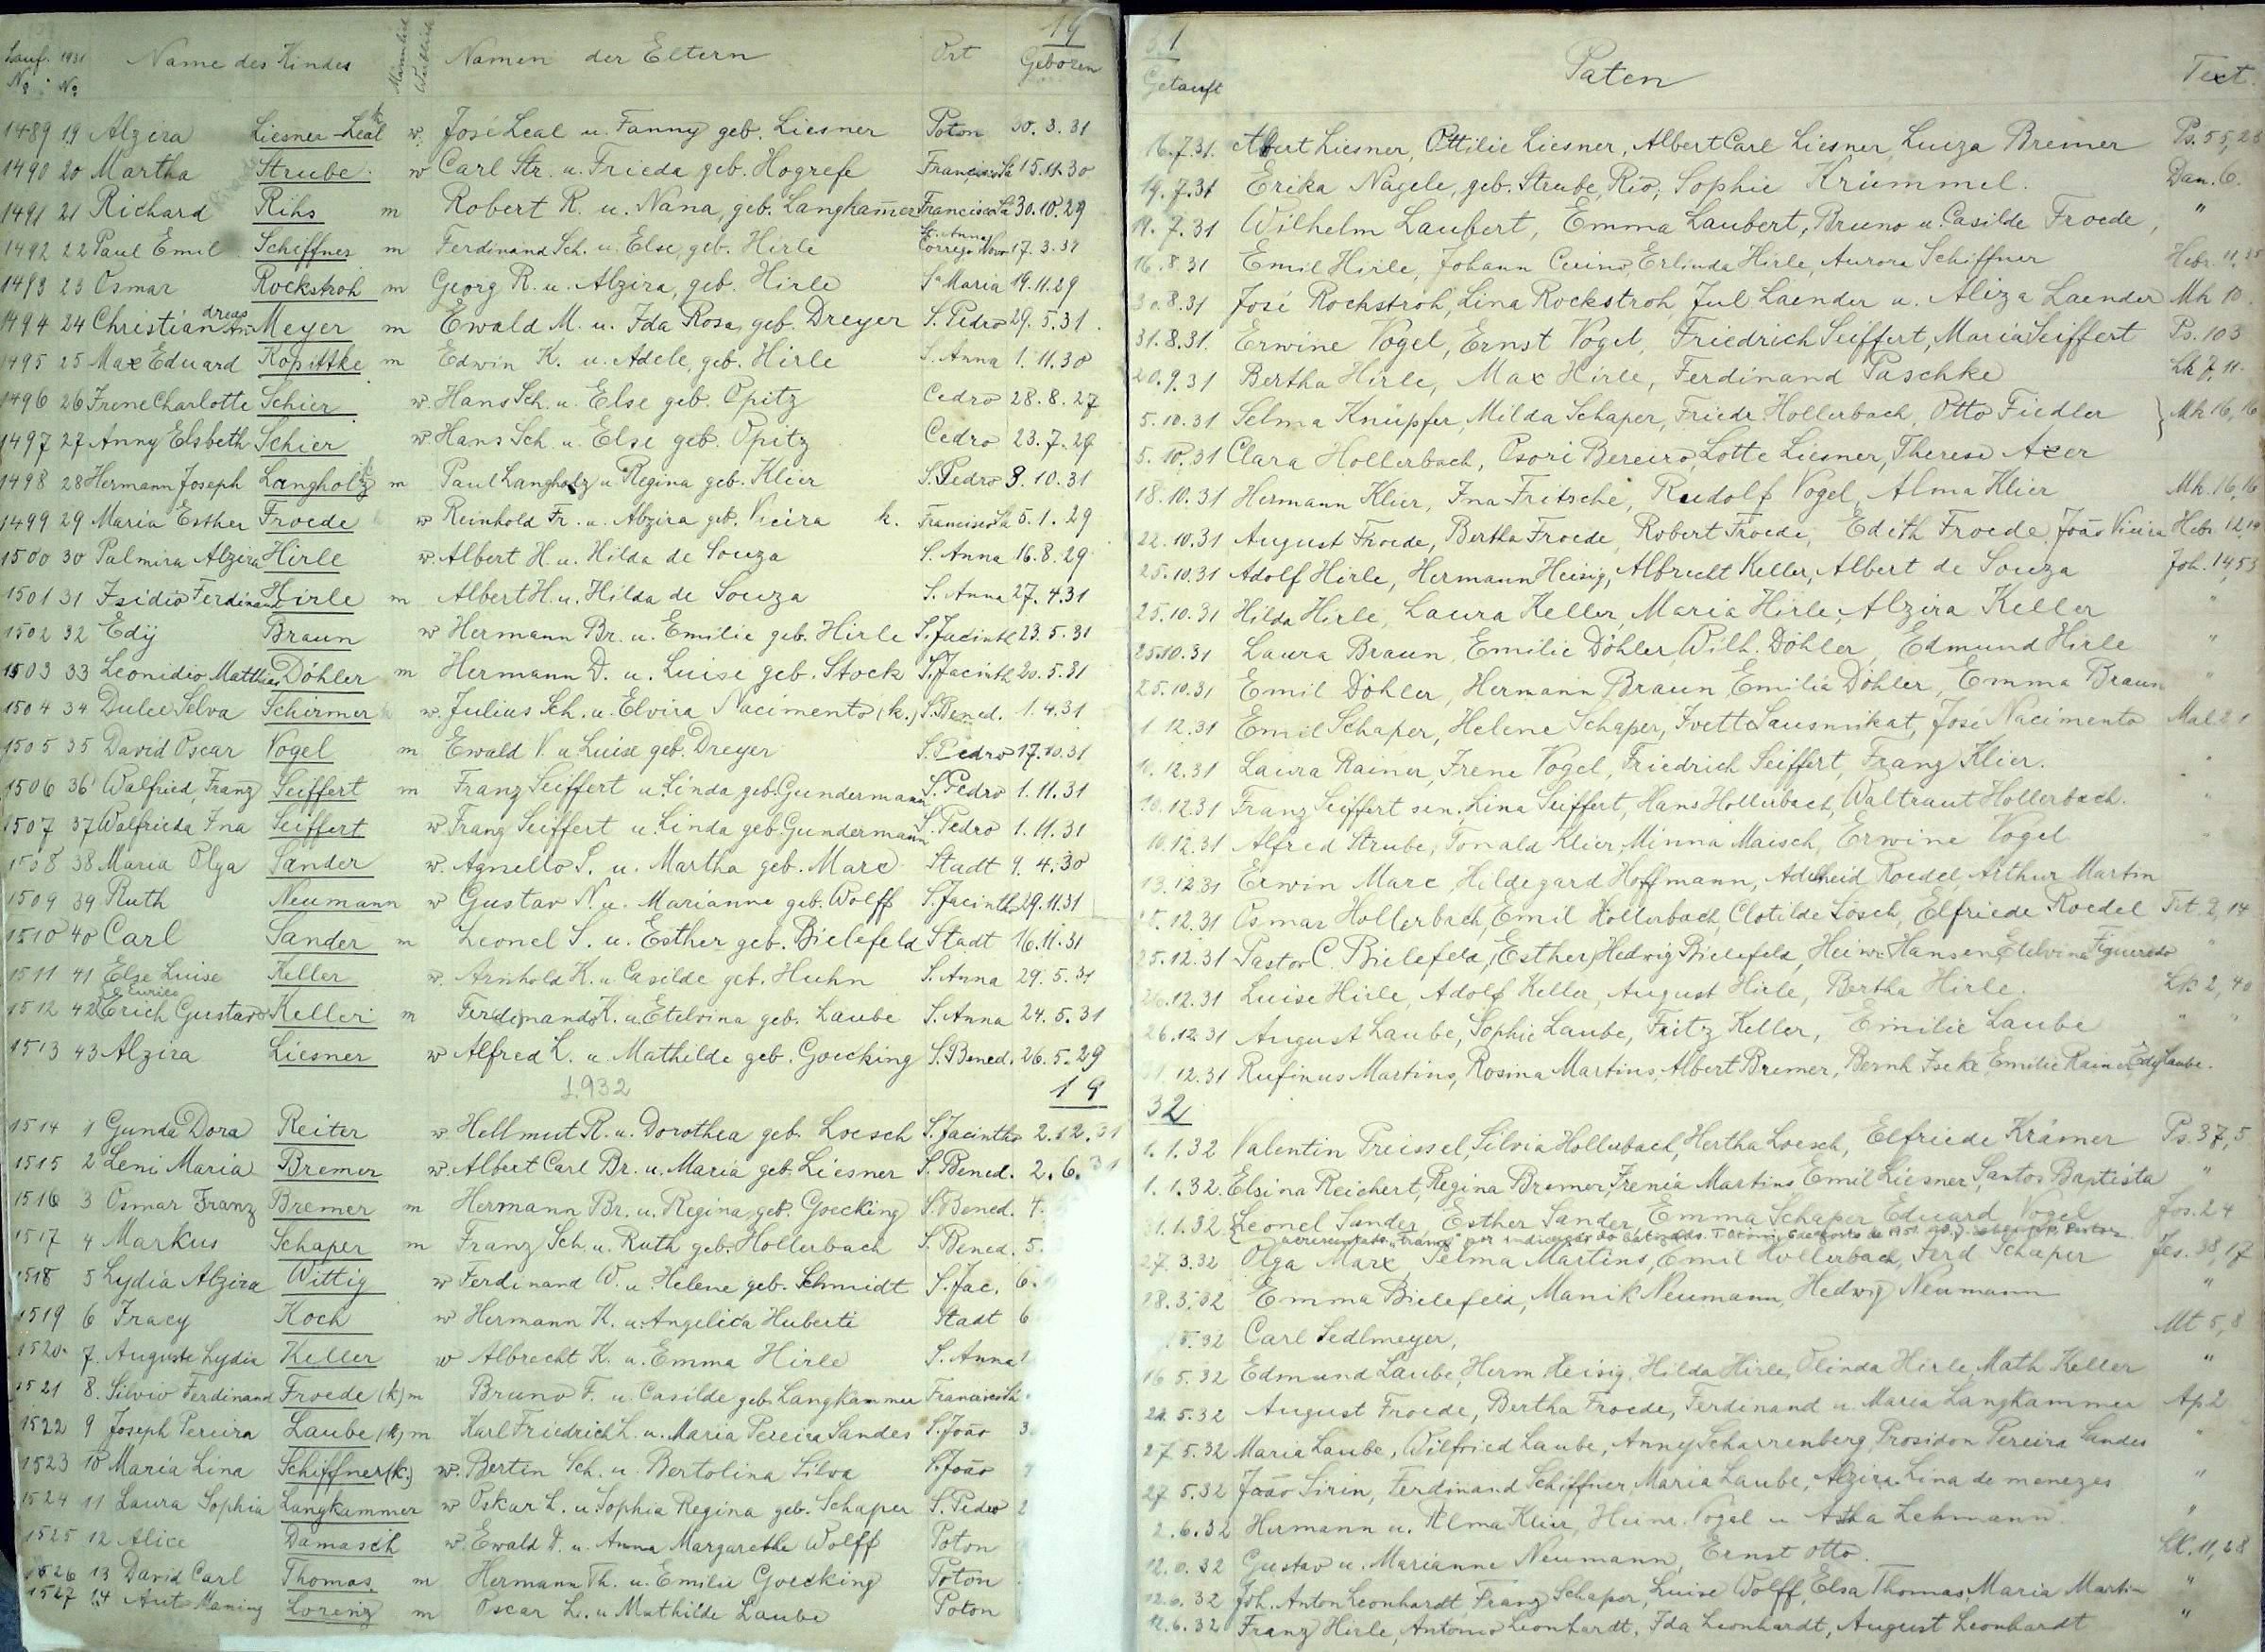 19
Lauf. No. 1931 No. Name des Kindes Männlich Weiblich Namen der Eltern Ort Geboren
1489 19 Alzira Liesner-Leal k w. José Leal u. Fanny geb. Liesner Poton 30.3.31
1490 20 Martha Strube w Carl Str. u. Frieda geb. Hogrefe Francisco Sá 15.11.30
1491 21 Richard Rihs m Robert R. u. Nana, geb. Langkam̅er Francisco Sá 30.10.29
1492 22 Paul Emil Schiffner m Ferdinand Sch. u. Else, geb. Hirle St. Anna Corrego Novo 17.3.31
1493 23 Osmar Rockstroh m Georg R. u. Alzira, geb. Hirle Sa Maria 19.11.29
1494 24 Christian Andreas Meyer m Ewald M. u. Ida Rosa, geb. Dreyer S. Pedro 29.5.31.
1495 25 Max Eduard Kopittke m Edwin K. u. Adele, geb. Hirle S. Anna 1.11.30
1496 26 Irene Charlotte Schier w. Hans Sch. u. Else geb. Opitz Cedro 28.8.27
1497 27 Anny Elsbeth Schier w. Hans Sch. u. Else geb. Opitz Cedro 23.7.29
1498 28 Hermann Joseph Langholz k m Paul Langholz u Regina geb. Klier S. Pedro 9.10.31
1499 29 Maria Esther Froede w Reinhold Fr. u. Alzira geb. Vieira k. Francisco Sá 5.1.29
1500 30 Palmira Alzira Hirle w. Albert H. u. Hilda de Souza S. Anna 16.8.29
1501 31 Isidio Ferdinand Hirle m Albert H. u. Hilda de Souza S. Anna 27.4.31
1502 32 Edij Braun w Hermann Br. u. Emilie geb. Hirle S. Jacinth 23.5.31
1503 33 Leonidio Matthias Döhler m Hermann D. u. Luise geb. Stock S. Jacinth 20.5.31
1504 34 Dulce Selva Schirmer k w. Julius Sch. u. Elvira Nacimento (k.) S. Bened. 1.4.31
1505 35 David Oscar Vogel m Ewald V. u. Luise geb. Dreyer S. Pedro 17.10.31
1506 36 Walfried, Franz Seiffert m Franz Seiffert u. Linda geb. Gundermann S. Pedro 1.11.31
1507 37 Walfrieda Ina Seiffert w. Franz Seiffert u. Linda geb. Gundermann S. Pedro 1.11.31
1508 38 Maria Olga Sander w. Agnello S. u. Martha geb. Marc Stadt 9.4.30
1509 39 Ruth Neumann w Gustav N. u. Marianne geb. Wolff S. Jacintho 29.11.31
1510 40 Carl Sander m Leonel S. u. Esther geb. Bielefeld Stadt 16.11.31
1511 41 Else Luise Keller w. Arnhold K. u. Casilde geb. Huhn S. Anna 29.5.31
1512 42 Eurico Erich Gustavo Keller m Ferdinando K. u. Etelvina geb. Laube S. Anna 24.5.31
1513 43 Alzira Liesner w Alfred L. u. Mathilde geb. Goecking S. Bened. 26.5.29
1932 19
1514 1 Gunda Dora Reiter w. Hellmut R. u. Dorothea geb. Loesch S. Jacintho 2.12.31
1515 2 Leni Maria Bremer w. Albert Carl Br. u. Maria geb. Liesner S. Bened. 2.6.31
1516 3 Osmar Franz Bremer m Hermann Br. u. Regina, geb. Goecking S. Bened. 4.
1517 4 Markus Schaper m Franz Sch. u. Ruth geb. Hollerbach S. Bened. 5.
1518 5 Lydia Alzira Wittig w Ferdinand W. u. Helene geb. Schmidt S. Jac. 6.
1519 6 Iracy Koch w Hermann K. u. Angelica Huberti Stadt 6
1520. 7. Auguste Lydia Keller w Albrecht K. u. Emma Hirle S. Anna
1521 8. Silvio Ferdinand Froede (k) m Bruno F. u. Casilde geb. Langkammer Francisco Sá
1522 9 Joseph Pereira Laube (k) m Karl Friedrich L. u. Maria Pereira Sandes S. João 3
1523 10 Maria Lina Schiffner (k.) w. Bertin Sch. u. Bertolina Silva S. João
1524 11 Laura Sophia Langkammer w Oskar L. u. Sophia Regina geb. Schaper S. Pedro 2
1525 12 Alice Damasch w. Ewald D. u. Anna Margarethe Wolff Poton
1526 13 David Carl Thomas m Hermann Th. u. Emilie Goecking Poton
1527 14 Lorenz m Oscar L. u. Mathilde Laube Poton
31
Getauft Paten Text.
16.7.31. Albert Liesner, Ottilie Liesner, Albert Carl Liesner, Luiza Bremer Ps. 55,23
19.7.31 Erika Nägele, geb. Strube, Rio, Sophie Krümmel. Dan. 6.
19.7.31 Wilhelm Laubert, Emma Laubert, Bruno u. Casilde Froede, "
16.8.31 Emil Hirle, Johann Cuino, Erlinda Hirle, Aurora Schiffner Hebr. 11,25
30.8.31 José Rockstroh, Lina Rockstroh, Jul Laender u. Aliza Laender Mk 10.
31.8.31. Erwine Vogel, Ernst Vogel, Friedrich Seiffert, Maria Seiffert Ps. 103
20.9.31 Bertha Hirle, Max Hirle, Ferdinand Paschke Lk 7,11.
5.10.31 Selma Knüpfer, Milda Schaper, Friedr. Hollerbach, Otto Fiedler } Mk 16,16
5.10.31 Clara Hollerbach, Osori Bereiro, Lotte Liesner, Therese Axer
18.10.31 Hermann Klier, Ina Fritsche, Rudolf Vogel, Alma Klier Mk. 16,16
22.10.31 August Froede, Bertha Froede, Robert Froede, Edith Froede, João Vieira Hebr 12,14
25.10.31 Adolf Hirle, Hermann Heisig, Albrecht Keller, Albert de Souza Joh. 14,53
25.10.31 Hilda Hirle, Laura Keller, Maria Hirle, Alzira Keller "
25.10.31 Laura Braun, Emilie Döhler, Wilh. Döhler, Edmund Hirle "
25.10.31 Emil Döhler, Hermann Braun, Emilia Döhler, Emma Braun "
1.12.31 Emil Schaper, Helene Schaper, Ivette Sausmikat, José Nacimento Mal 2 1
10.12.31 Laura Rainer, Irene Vogel, Friedrich Seiffert, Franz Klier. "
10.12.31 Franz Seiffert sen. Lina Seiffert, Hans Hollerbach, Waltraut Hollerbach. "
10.12.31 Alfred Strube, Tonald Klier, Minna Maisch, Erwine Vogel "
13.12.31 Erwin Marc, Hildegard Hoffmann, Adelheid Roedel, Arthur Martin
25.12.31 Osmar Hollerbach, Emil Hollerbach, Clotilde Lösch, Elfriede Roedel Tit. 2,14
25.12.31 Pastor C. Bielefeld, Esther, Hedwig Bielefeld, Heinr. Hansen, Etelvina Figueredo "
26.12.31 Luise Hirle, Adolf Keller, August Hirle, Bertha Hirle. Lk 2,40
26.12.31 August Laube, Sophie Laube, Fritz Keller, Emilie Laube " "
12.31 Rufinus Martins, Rosina Martins, Albert Bremer, Bernh Iseke, Emilie Rainer, Edy Laube.
32
1.1.32 Valentin Preissel, Silvia Hollerbach, Hertha Loesch, Elfriede Krämer Ps. 37,5
1.1.32. Elsina Reichert, Regina Bremer, Irenia Martins Emil Liesner, Santos Baptista "
1.1.32. Leonel Sander, Esther Sander, Emma Schaper, Eduard Vogel Jos. 24
27.3.32 Olga Marx, Selma Martins, Emil Hollerbach, Ferd Schaper Jes. 38,17
28.3.32 Emma Bielefeld, Manik Neumann, Hedwig Neumann "
5.32 Carl Sedlmeyer, Mt 5,8
16 5.32 Edmund Laube, Herm Heisig, Hilda Hirle, Olinda Hirle, Math Keller "
22.5.32 August Froede, Bertha Froede, Ferdinand u. Maria Langkammer Ap 2
27 5.32 Maria Laube, Wilfried Laube, Anny Scharrenberg, Prosidon Pereira Sandes "
27 5.32 João Sirin, Ferdinand Schiffner, Maria Laube, Alzira Lina de menezes "
2.6.32 Hermann u. Alma Klier, Heinr. Vogel u Lehmann "
12.6.32 Gustav u. Marianne Neumann, Ernst Otto. Lk. 11,28
12.6.32 Joh. Anton Leonhardt, Franz Schaper, Luise Wolff, Elsa Thomas, Maria Martin "
12.6.32 Franz Hirle, Antonio Leonhardt, Ida Leonhardt, August Leonhardt "